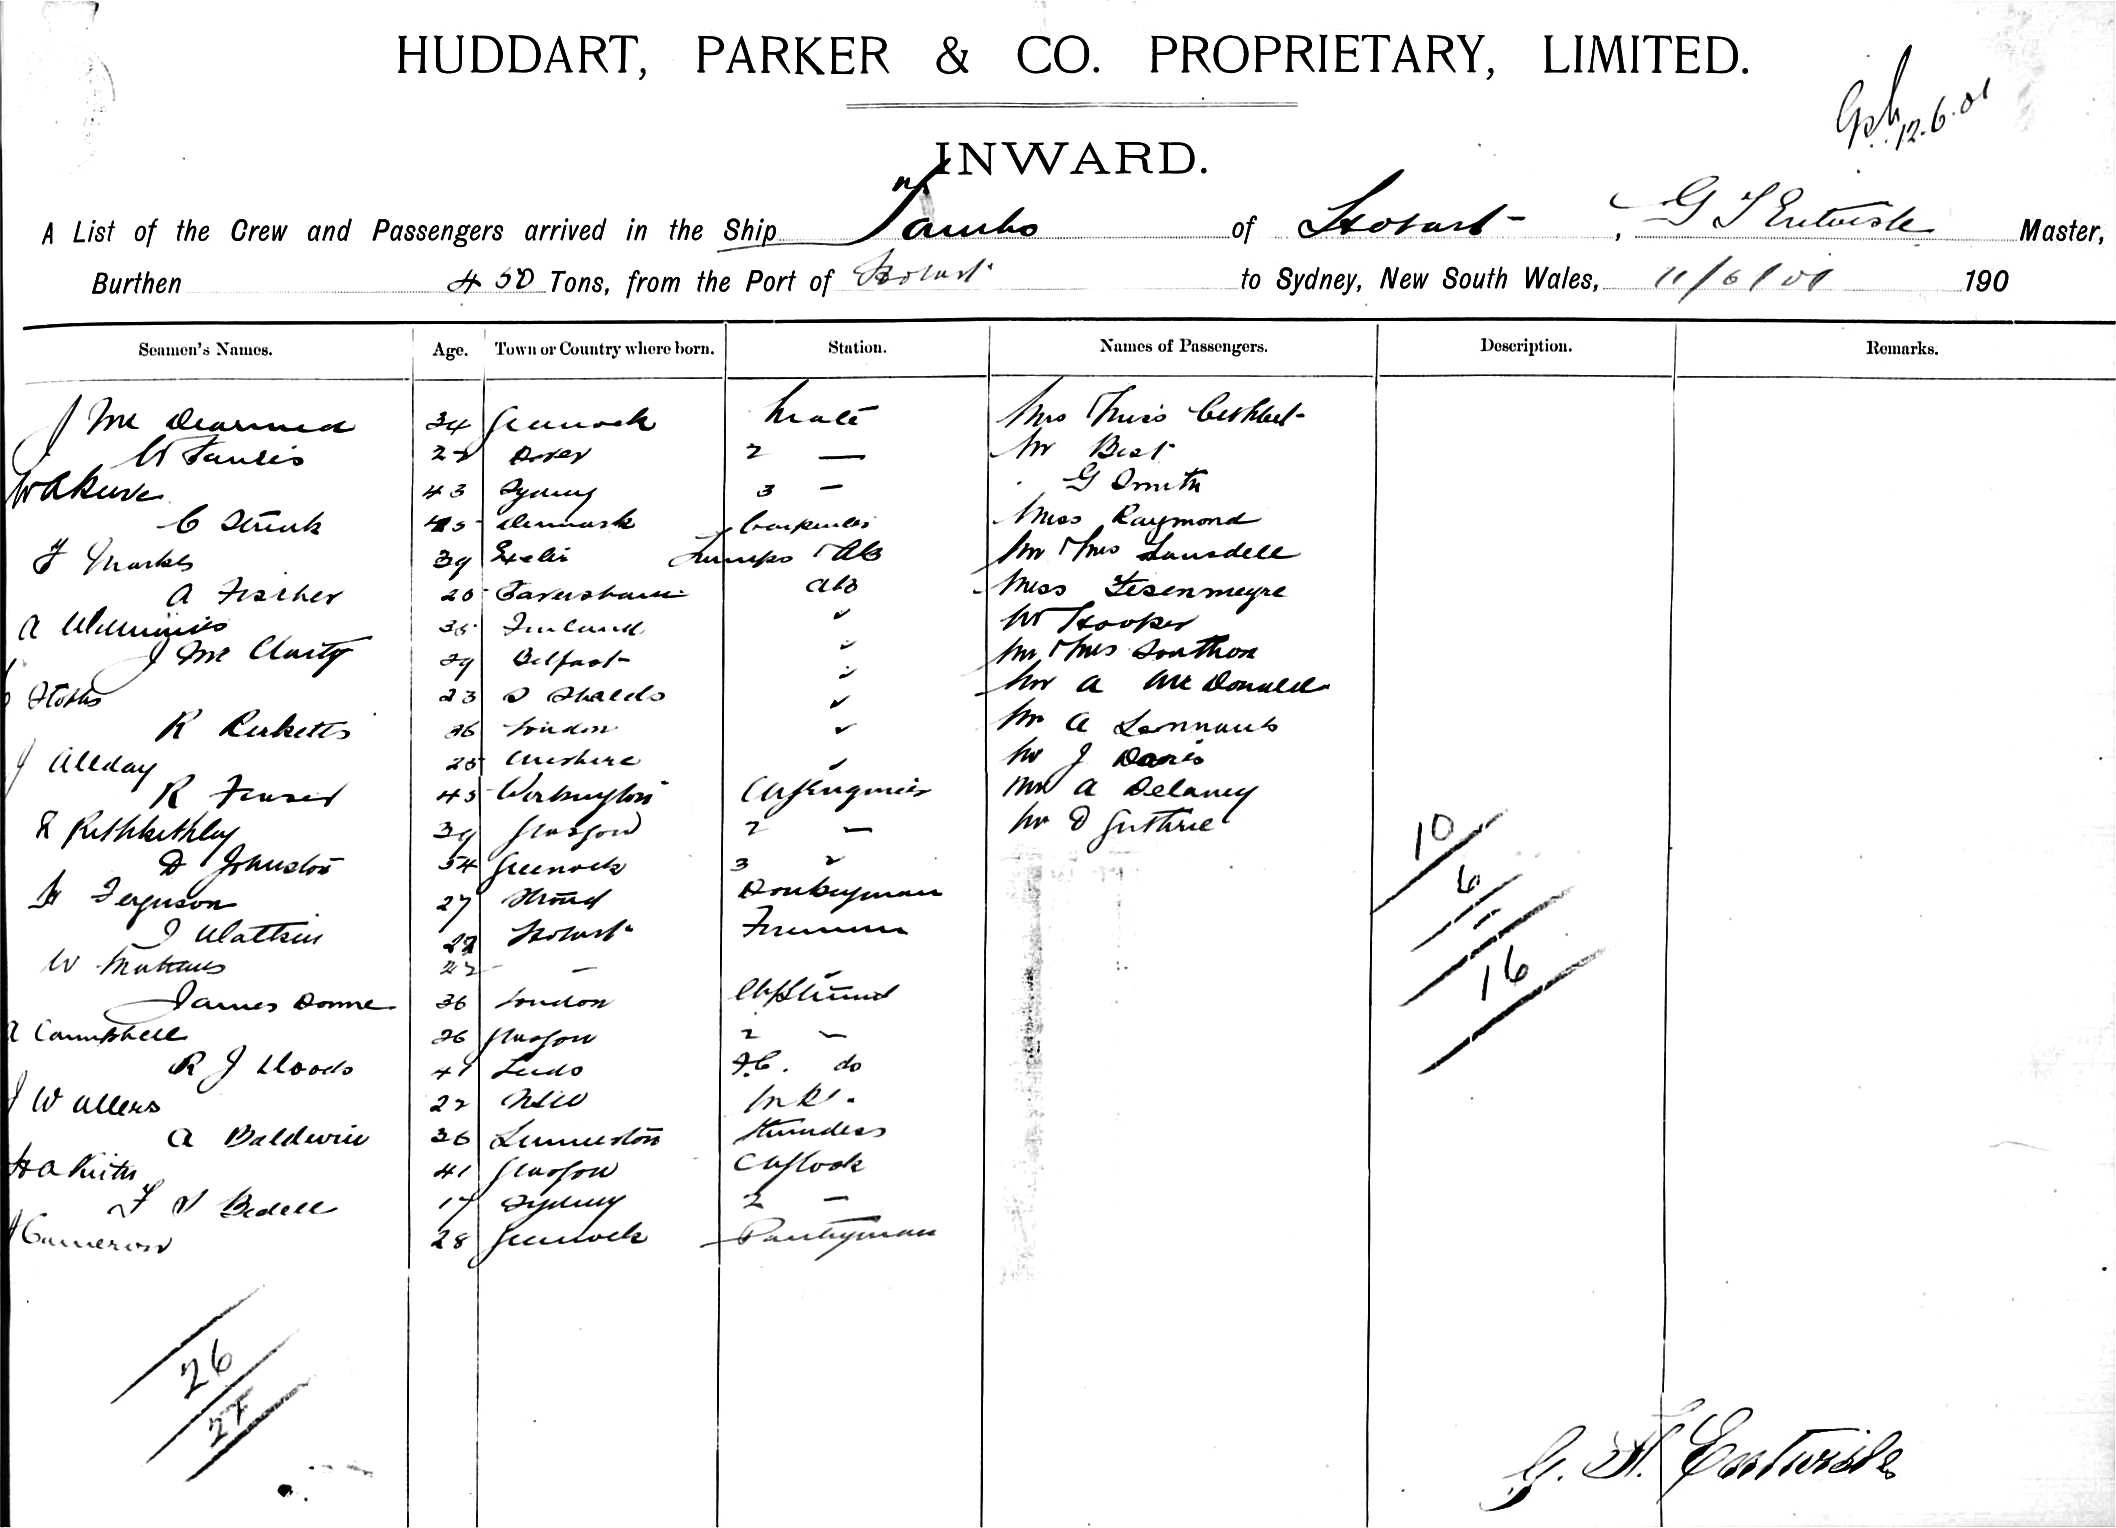 HUDDART, PARKER & CO. PROPRIETARY, LIMITED.
12.6.01
INWARD.
A List of the Crew and Passengers arrived in the Ship Tambo of Hobart, G T Entwisle Master,
Burthen 450 Tons, from the Port of Hobart to Sydney, New South Wales, 11/6/01 190
Seamen's Names. Age. Town or Country where born. Station. Names of Passengers. Description. Remarks.
J Mc Dearmed 34 Greenock Mate Mrs & Miss Cuthbert
W 22 Dover 2 — Mr Best
W A 43 Sydney 3 — G Smith
C 45 Denmark Carpenter Miss Raymond
F Marks 39 Exeter Lamps & AB Mr & Mrs Lansdell
A Fischer 25 Faversham AB Miss Fesenmeyre
A Williams 35 Finland Mr Hooper
J Mc Clarty 29 Belfast Mr & Mrs Southon
23 S Shields Mr A McDonald
R Ricketts 36 London Mr A Lennard
J Allday 25 Cheshire Mr J Davis
R Fraser 45 Workington Ch Engineer Mr A Delaney
39 Glasgow 2 — Mr D Guthrie
10
D Johnston 54 Greenock 3
6
H Ferguson 27 Stroud Donkeyman
J Watkin 22 Hobart Fireman
W 22 — 16
James Donne 36 London Ch Steward
A Campbell 26 Glasgow 2 —
R J Woods 41 Leeds F.C. do
J W Allers 22 NSW
A Baldwin 36 Launceston Stewardess
H A Keith 41 Glasgow Ch Cook
F V Bedell 17 Sydney 2 —
J Cameron 28 Greenock Pantryman
26
27
G. T. Entwisle